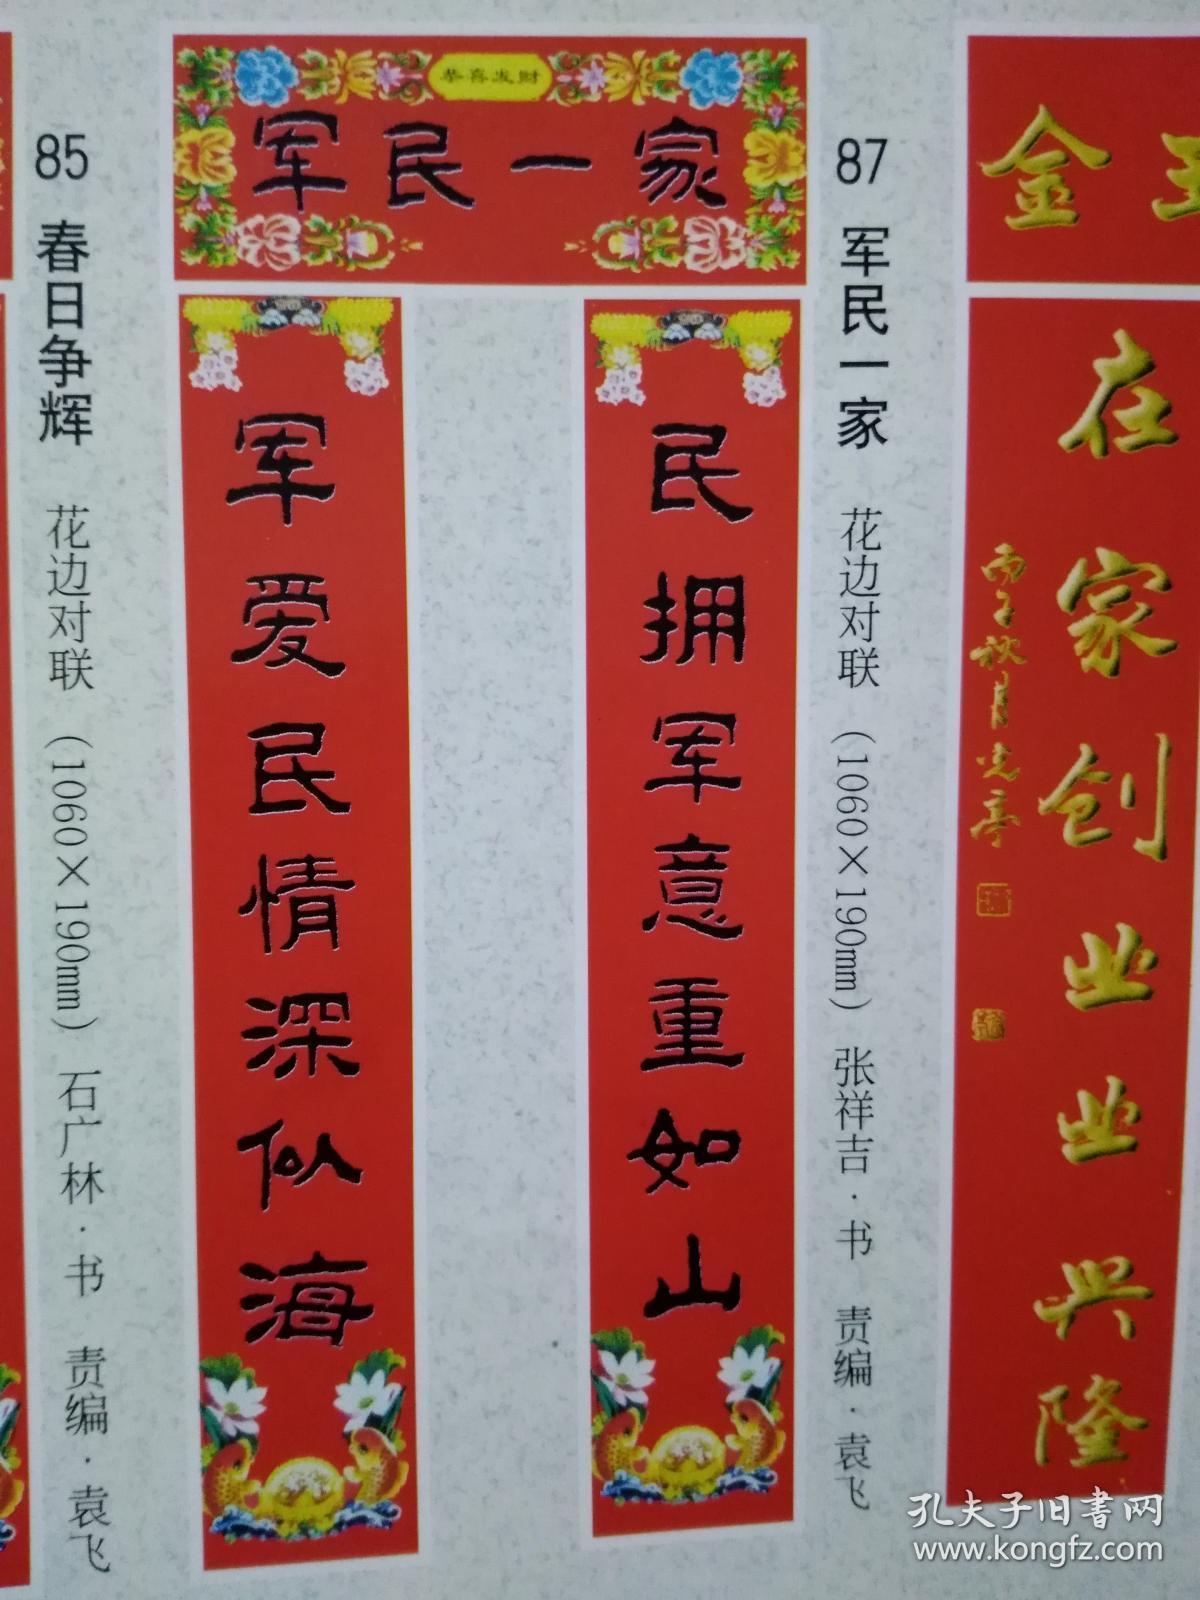 85 春日争辉 花边对联 (1060×190mm) 石广林·书 责编·袁飞
恭喜发财
军民一家
军爱民情深似海
民拥军意重如山
87 军民一家 花边对联 (1060×190mm) 张祥吉·书 责编·袁飞
金玉
在家创业业兴隆
丙子秋月光亭
孔夫子旧书网
www.kongfz.com